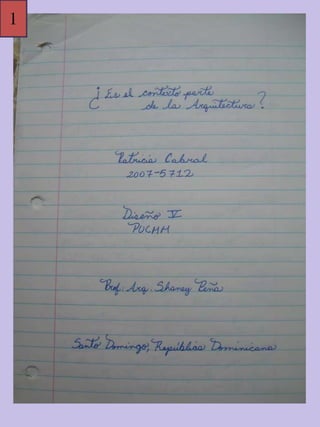 1
¿Es el contexto parte
de la Arquitectura?
Patricia Cabral
2007-5712
Diseño IV
PUCMM
Prof. Arq. Shaney Peña
Santo Domingo, República Dominicana